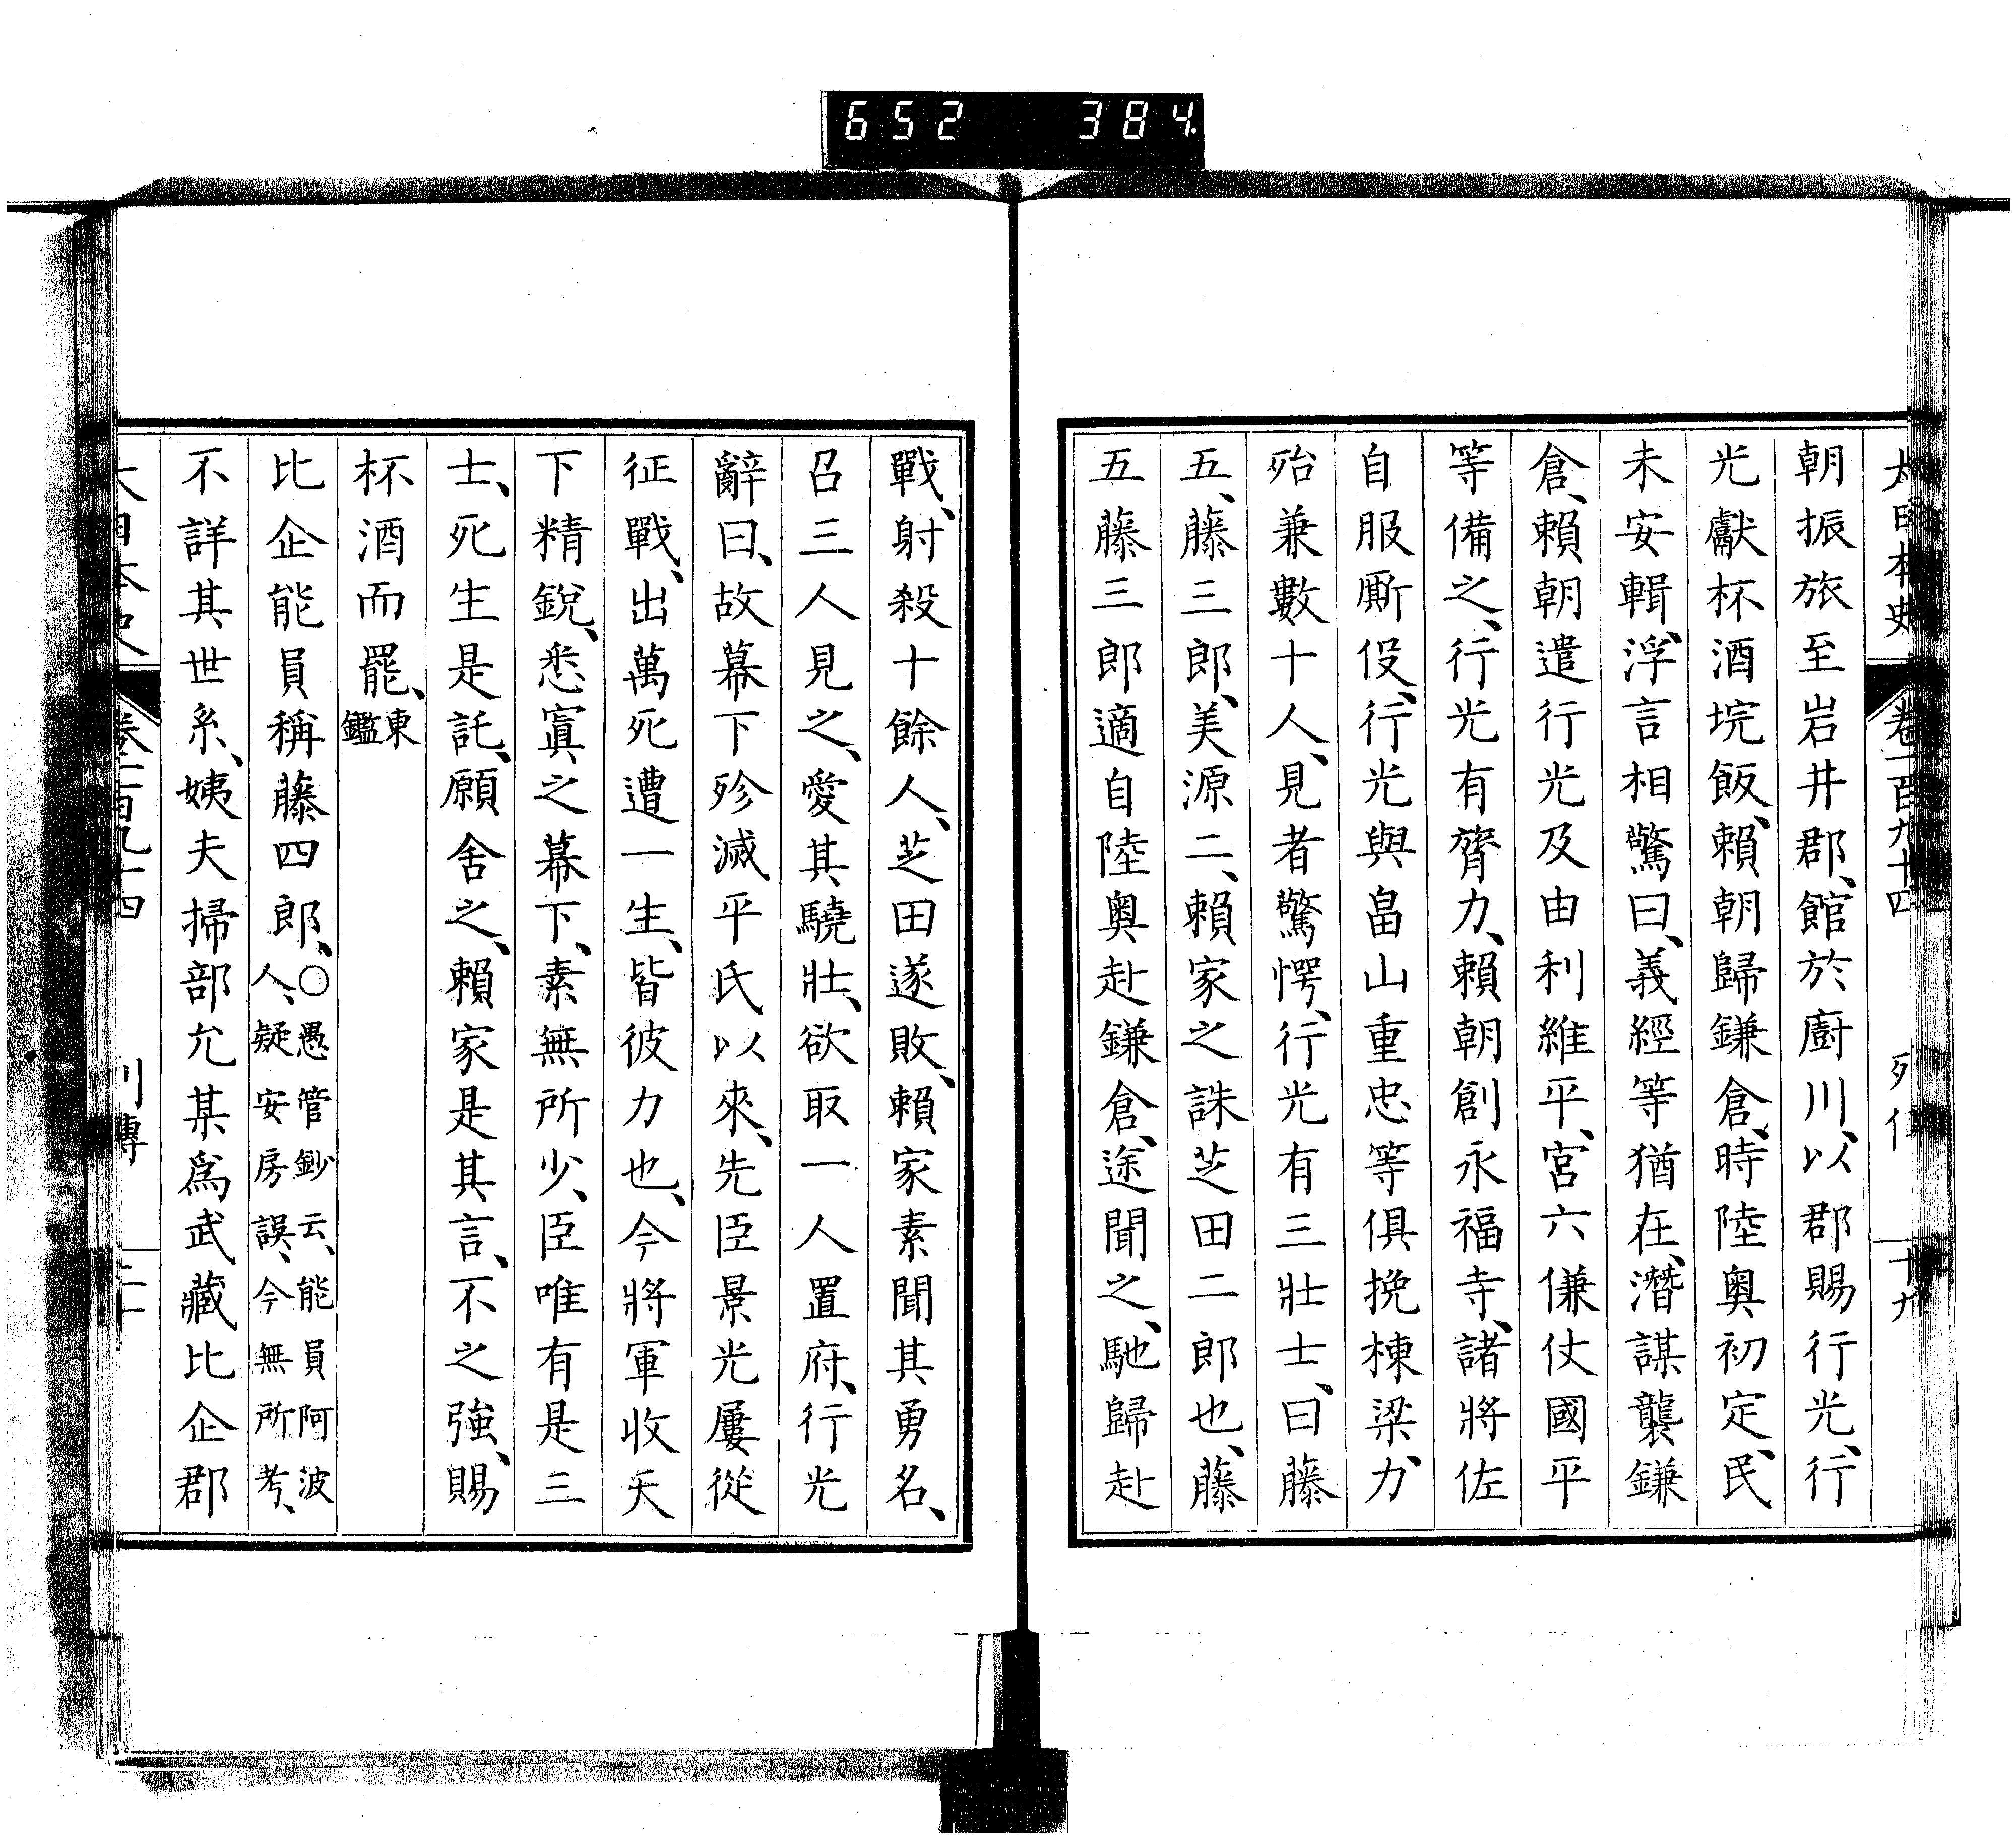 652 384
大日本史 卷一百九十四 列傳 十九
朝振旅至岩井郡、館於廚川、以郡賜行光、行
光獻杯酒垸飯、賴朝歸鎌倉、時陸奧初定、民
未安輯、浮言相驚曰、義經等猶在、潛謀襲鎌
倉、賴朝遣行光及由利維平、宮六傔仗國平
等備之、行光有膂力、賴朝創永福寺、諸將佐
自服厮役、行光與畠山重忠等俱挽棟梁、力
殆兼數十人、見者驚愕、行光有三壯士、曰藤
五、藤三郎、美源二、賴家之誅芝田二郎也、藤
五藤三郎適自陸奧赴鎌倉、途聞之、馳歸赴
戰、射殺十餘人、芝田遂敗、賴家素聞其勇名、
召三人見之、愛其驍壯、欲取一人置府、行光
辭曰、故幕下殄滅平氏以來、先臣景光屢從
征戰、出萬死遭一生、皆彼力也、今將軍收天
下精銳、悉寘之幕下、素無所少、臣唯有是三
士、死生是託、願舍之、賴家是其言、不之強、賜
杯酒而罷、東鑑
比企能員稱藤四郎、○愚管鈔云、能員阿波人、疑安房誤、今無所考、
不詳其世系、姨夫掃部允某爲武藏比企郡
大日本史 卷一百九十四 列傳 二十